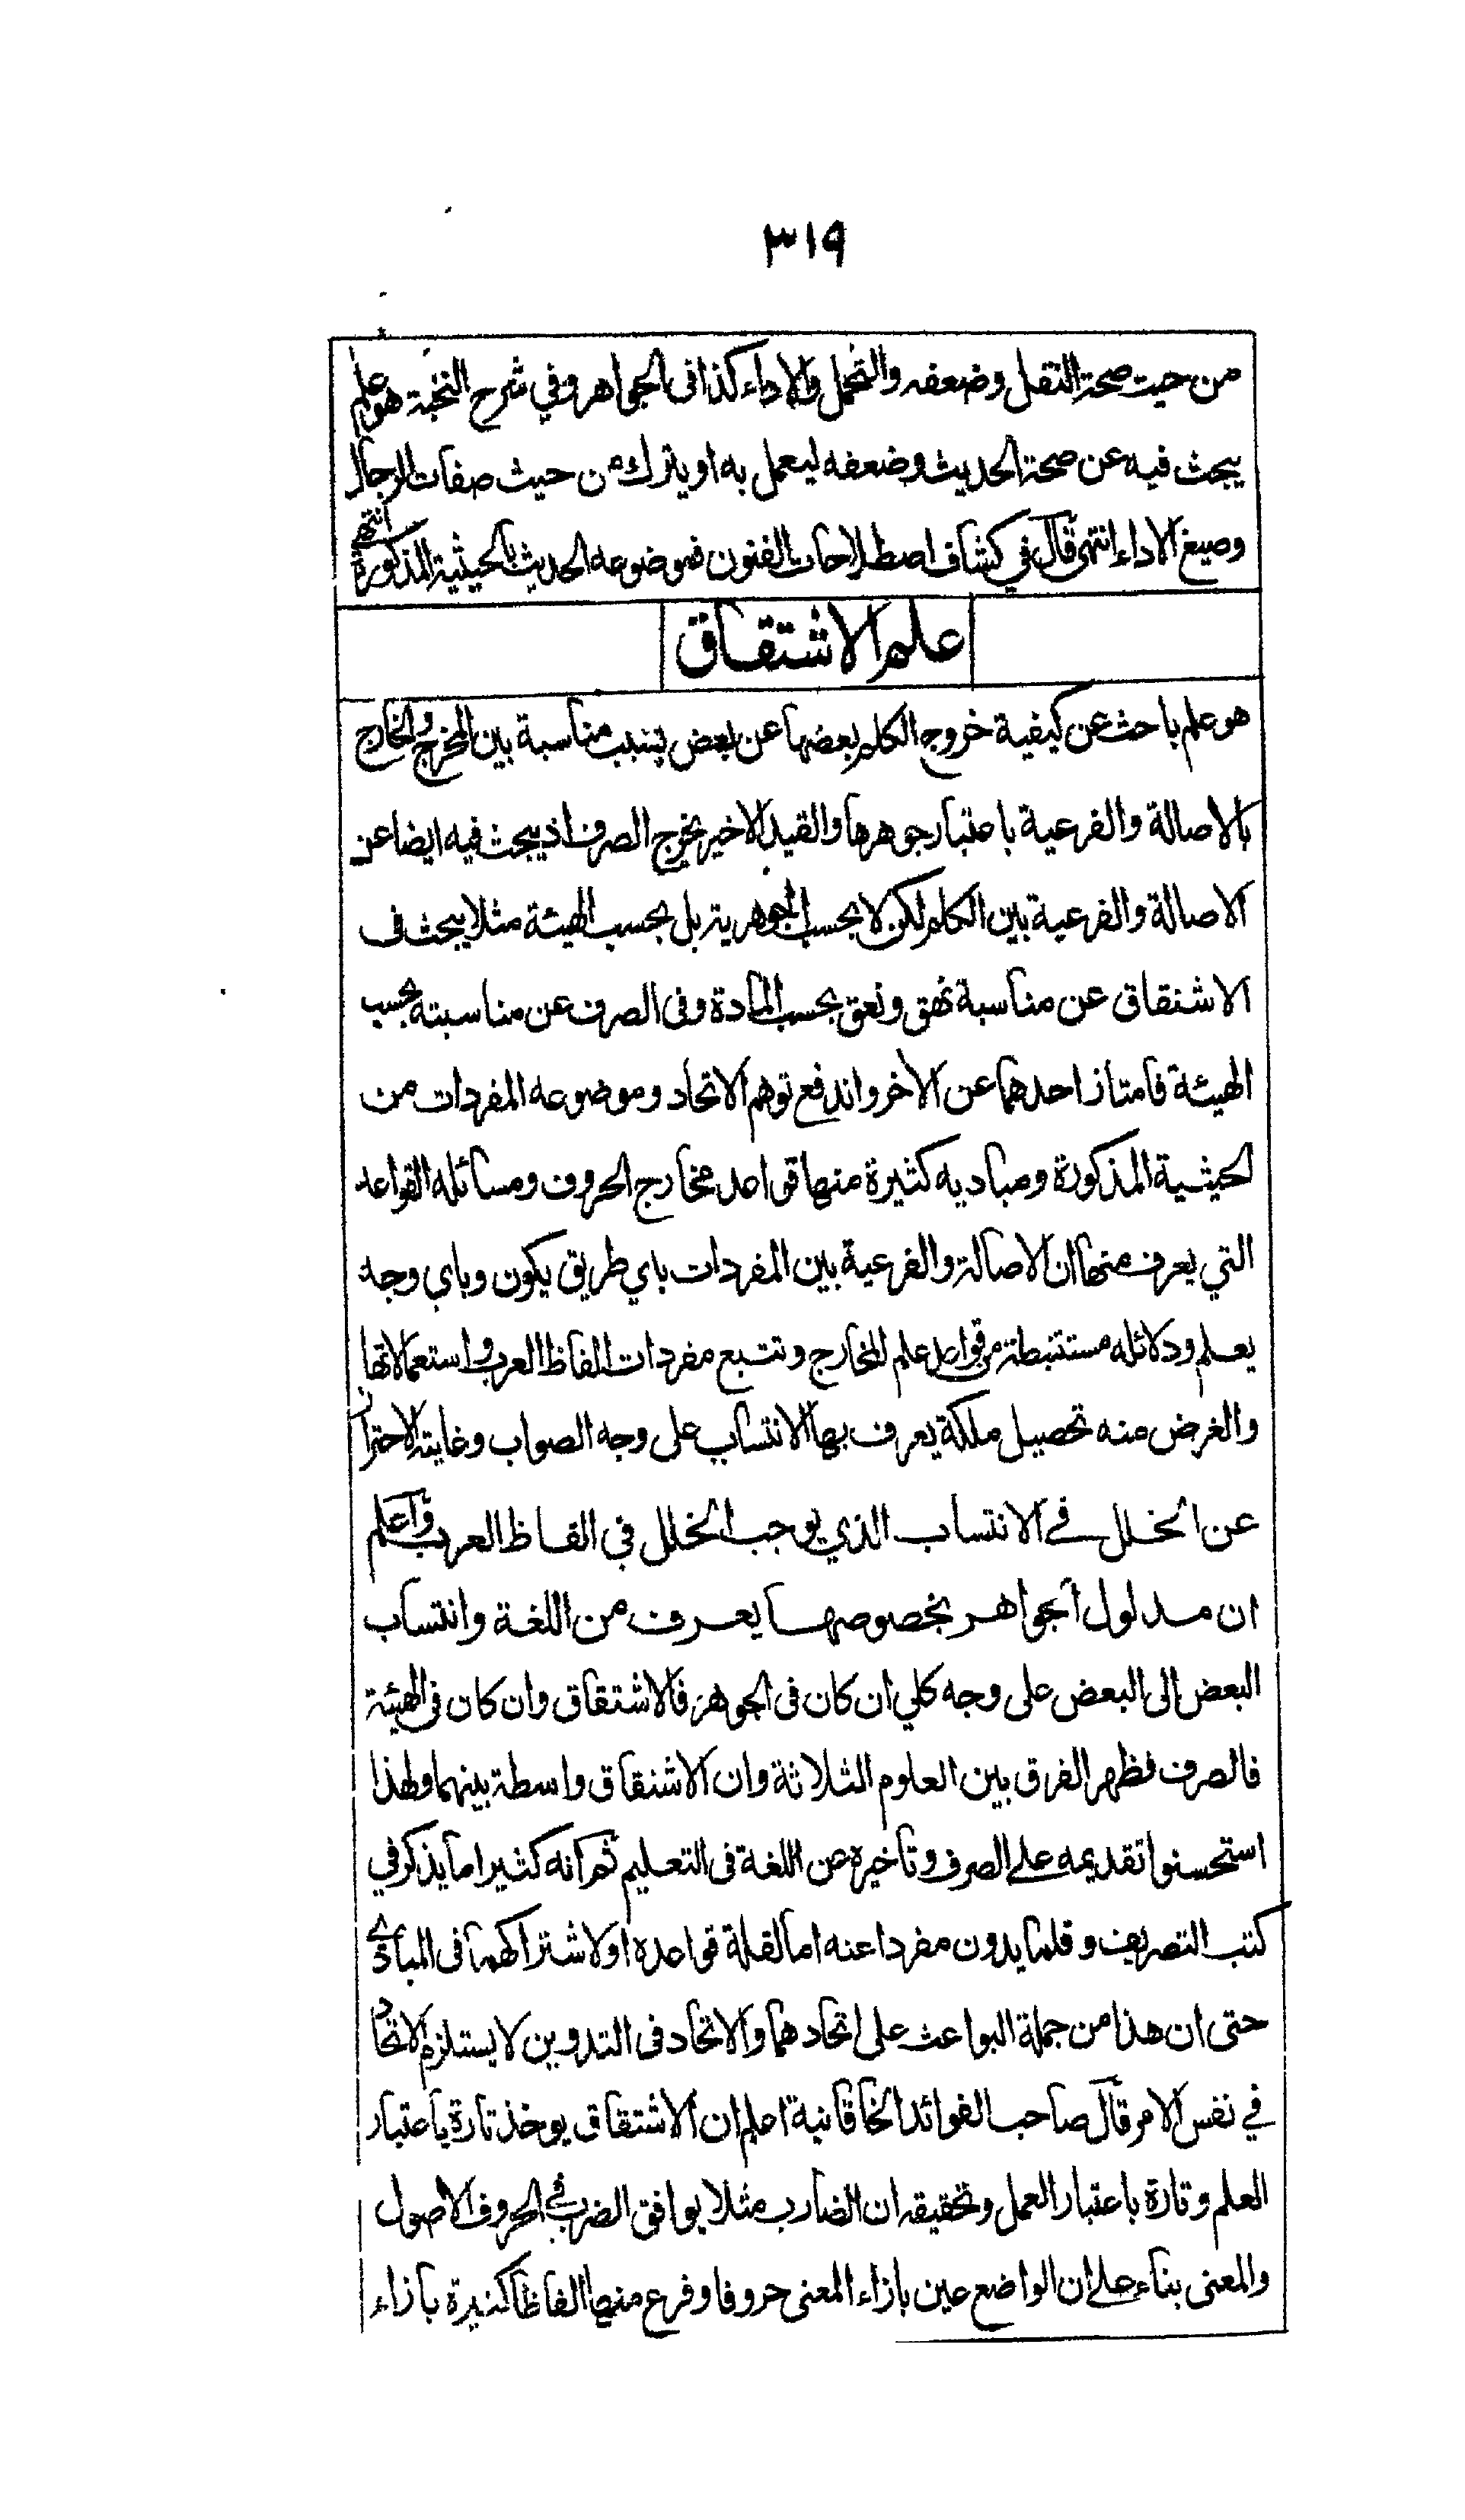 ٣١٩
من حيث صحة النقل وضعفه والتحمل والاداء كذا فى الجواهر وفي شرح النخبة هو علم
يبحث فيه عن صحة الحديث وضعفه ليعمل به او يترك من حيث صفات الرجال
وصيغ الاداء انتهى قال في كشاف اصطلاحات الفنون فموضوعه الحديث بالحيثية المذكورة انتهى
علم الاشتقاق
هو علم باحث عن كيفية خروج الكلم بعضها عن بعض بسبب مناسبة بين المخرج والخارج
بالاصالة والفرعية باعتبار جوهرها والقيد الاخير يخرج الصرف اذ يبحث فيه ايضا عن
الاصالة والفرعية بين الكلم لكن لا بحسب الجوهرية بل بحسب الهيئة مثلا يبحث فى
الاشتقاق عن مناسبة نهق ونعق بحسب المادة وفى الصرف عن مناسبته بحسب
الهيئة فامتاز احدهما عن الاخر واندفع توهم الاتحاد وموضوعه المفردات من
الحيثية المذكورة ومباديه كثيرة منها قواعد مخارج الحروف ومسائله القواعد
التي يعرف منها ان الاصالة والفرعية بين المفردات باي طريق يكون وباي وجه
يعلم ودلائله مستنبطة من قواعد علم المخارج وتتبع مفردات الفاظ العرب واستعمالاتها
والغرض منه تحصيل ملكة يعرف بها الانتساب على وجه الصواب وغايته الاحتراز
عن الخلل في الانتساب الذي يوجب الخلل في الفاظ العرب واعلم
ان مدلول الجواهر بخصوصها يعرف من اللغة وانتساب
البعض الى البعض على وجه كلي ان كان فى الجوهر فالاشتقاق وان كان فى الهيئة
فالصرف فظهر الفرق بين العلوم الثلاثة وان الاشتقاق واسطة بينهما ولهذا
استحسنوا تقديمه على الصرف وتأخيره عن اللغة فى التعليم ثم انه كثيرا ما يذكر في
كتب التصريف وقلما يدون مفردا عنه اما لقلة قواعده او لاشتراكهما فى المبادي
حتى ان هذا من جملة البواعث على اتحادهما والاتحاد فى التدوين لا يستلزم الاتحاد
في نفس الامر قال صاحب الفوائد الخاقانية اعلم ان الاشتقاق يوخذ تارة باعتبار
العلم وتارة باعتبار العمل وتحقيقه ان الضارب مثلا يوافق الضرب في الحروف الاصول
والمعنى بناء على ان الواضع عين بازاء المعنى حروفا وفرع منها الفاظا كثيرة بازاء